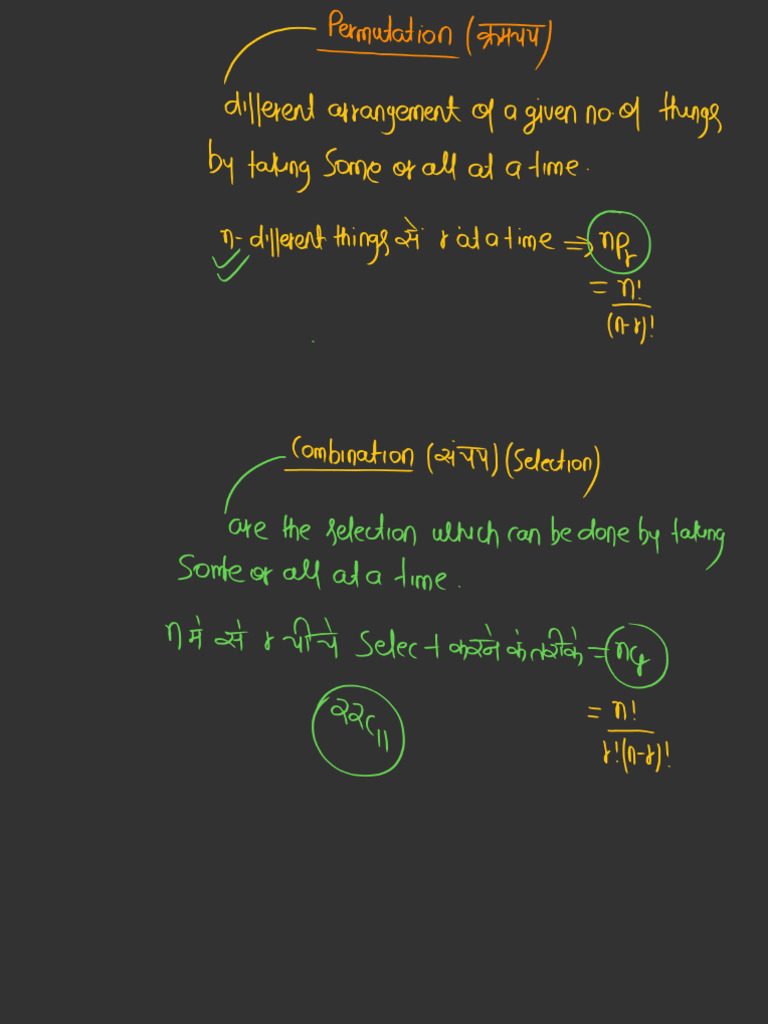 Permutation (क्रमचय)
different arrangement of a given no. of things
by taking some or all at a time.
n- different things से r at a time ⇒ nPr
= n!
(n-r)!
Combination (संचय) (Selection)
are the selection which can be done by taking
some or all at a time.
n में से r चीचे select करने के तरीके = nCr
22C11
= n!
r!(n-r)!